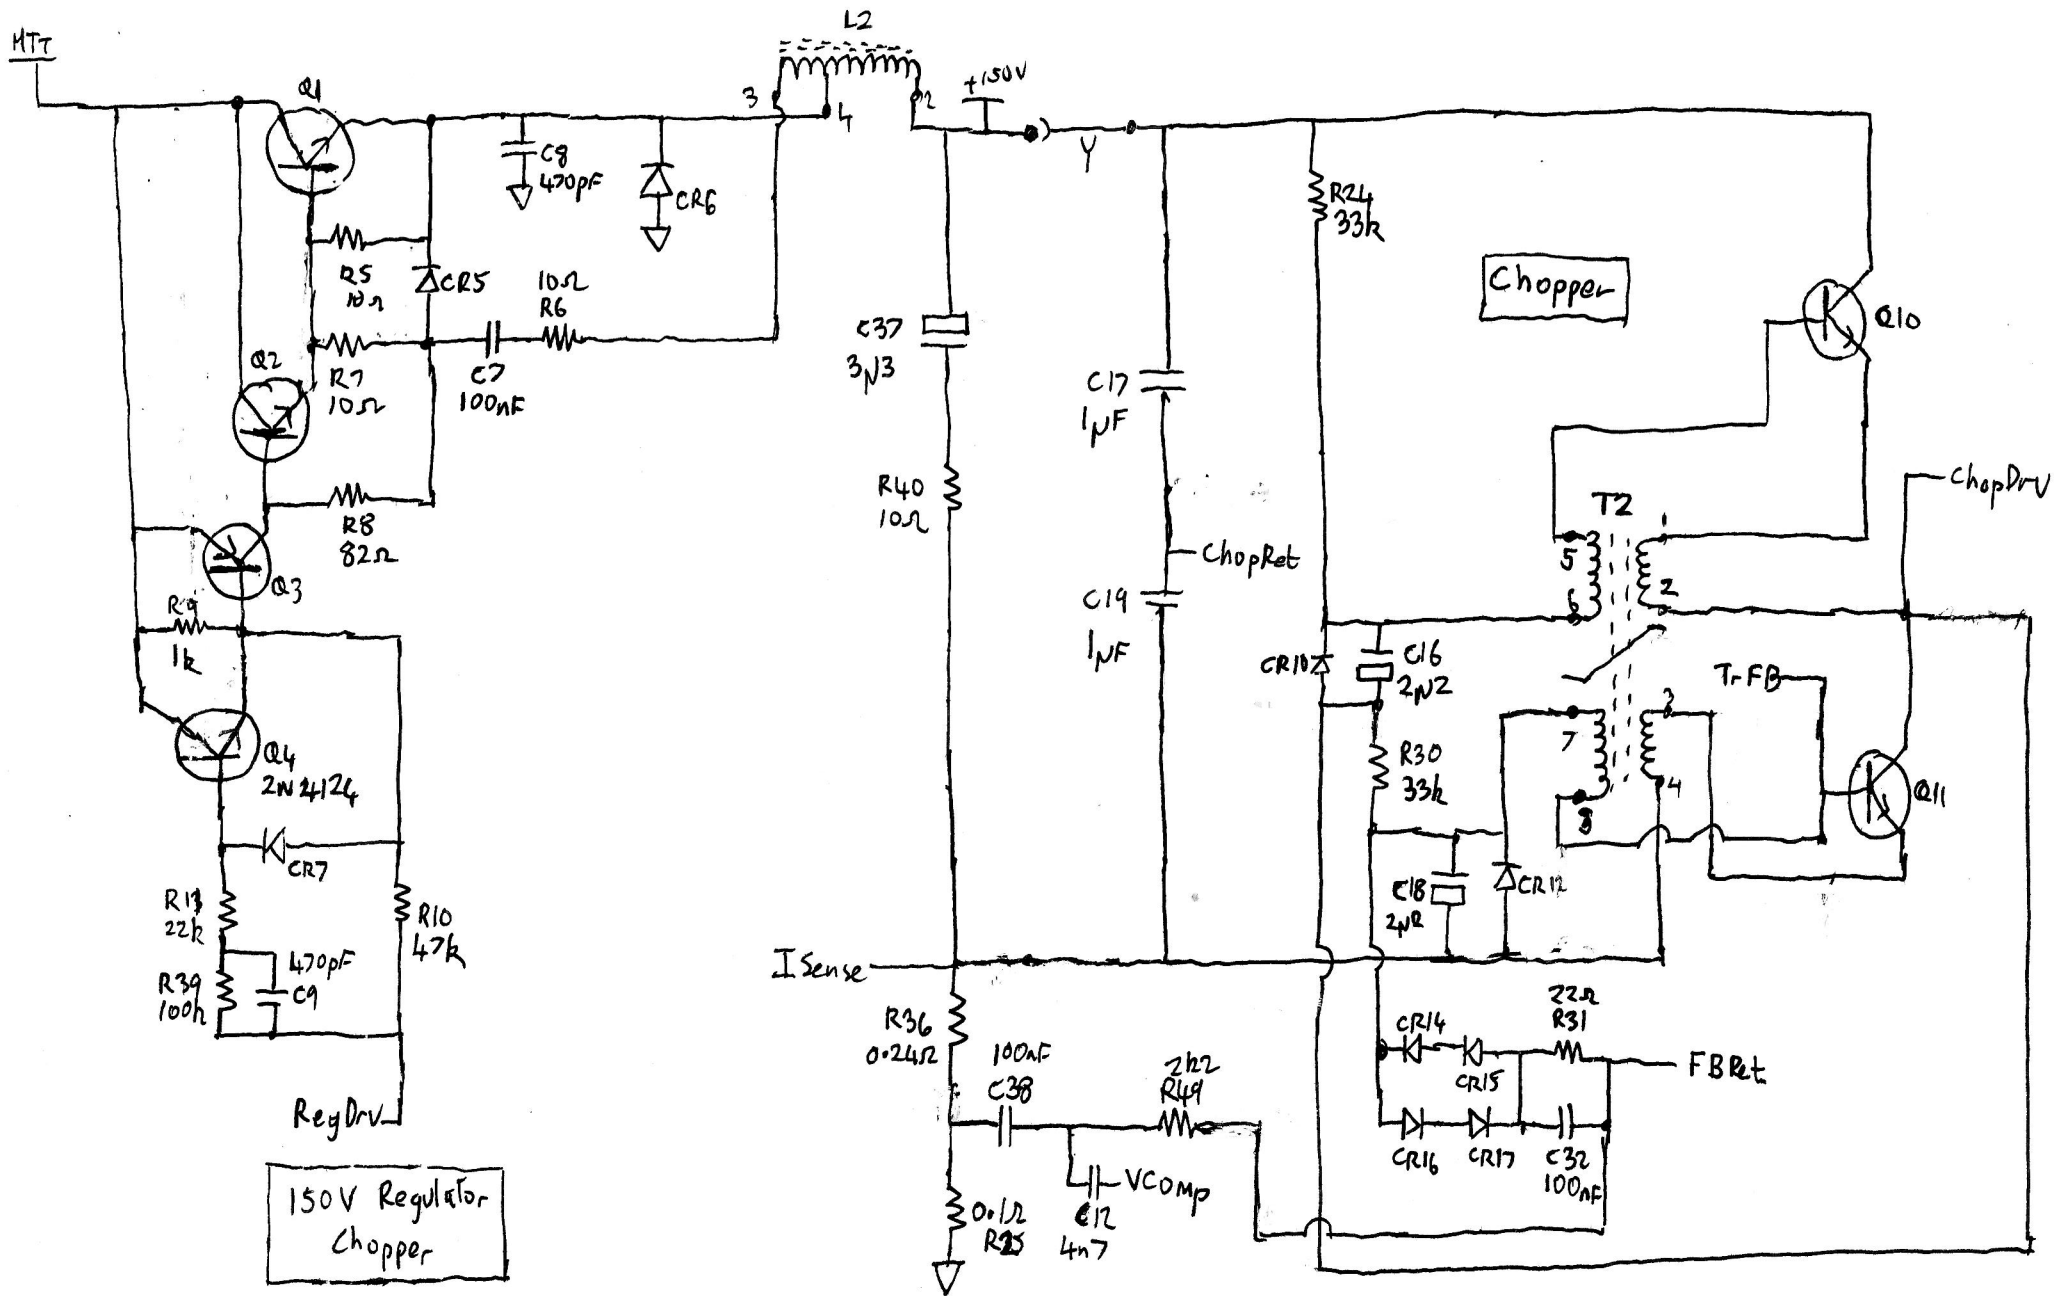 HTT
Q1
L2
3
4
2
+150V
Y
C8
470pF
CR6
R5
10Ω
CR5
10Ω
R6
C7
100nF
Q2
R7
10Ω
R8
82Ω
Q3
R9
1k
Q4
2N4124
CR7
22k
R39
100k
470pF
C9
R10
47k
RegDrv
150V Regulator
Chopper
C37
3μ3
R40
10Ω
C17
1μF
ChopRet
C19
1μF
R24
33k
Chopper
Q10
ChopDrv
T2
5
6
1
2
CR10
C16
2μ2
TrFB
7
8
3
4
R30
33k
Q11
C18
2μ2
CR12
ISense
R36
0.24Ω
100nF
C38
2k2
R49
VComp
C12
4n7
0.1Ω
22Ω
R31
CR14
CR15
FBRet
CR16
CR17
C32
100nF